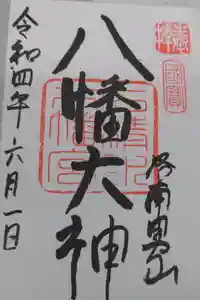 国寶
洛南男山
八幡大神
令和四年六月一日